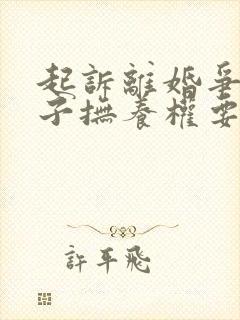 起訴離婚爭
子撫養權要
許平飛